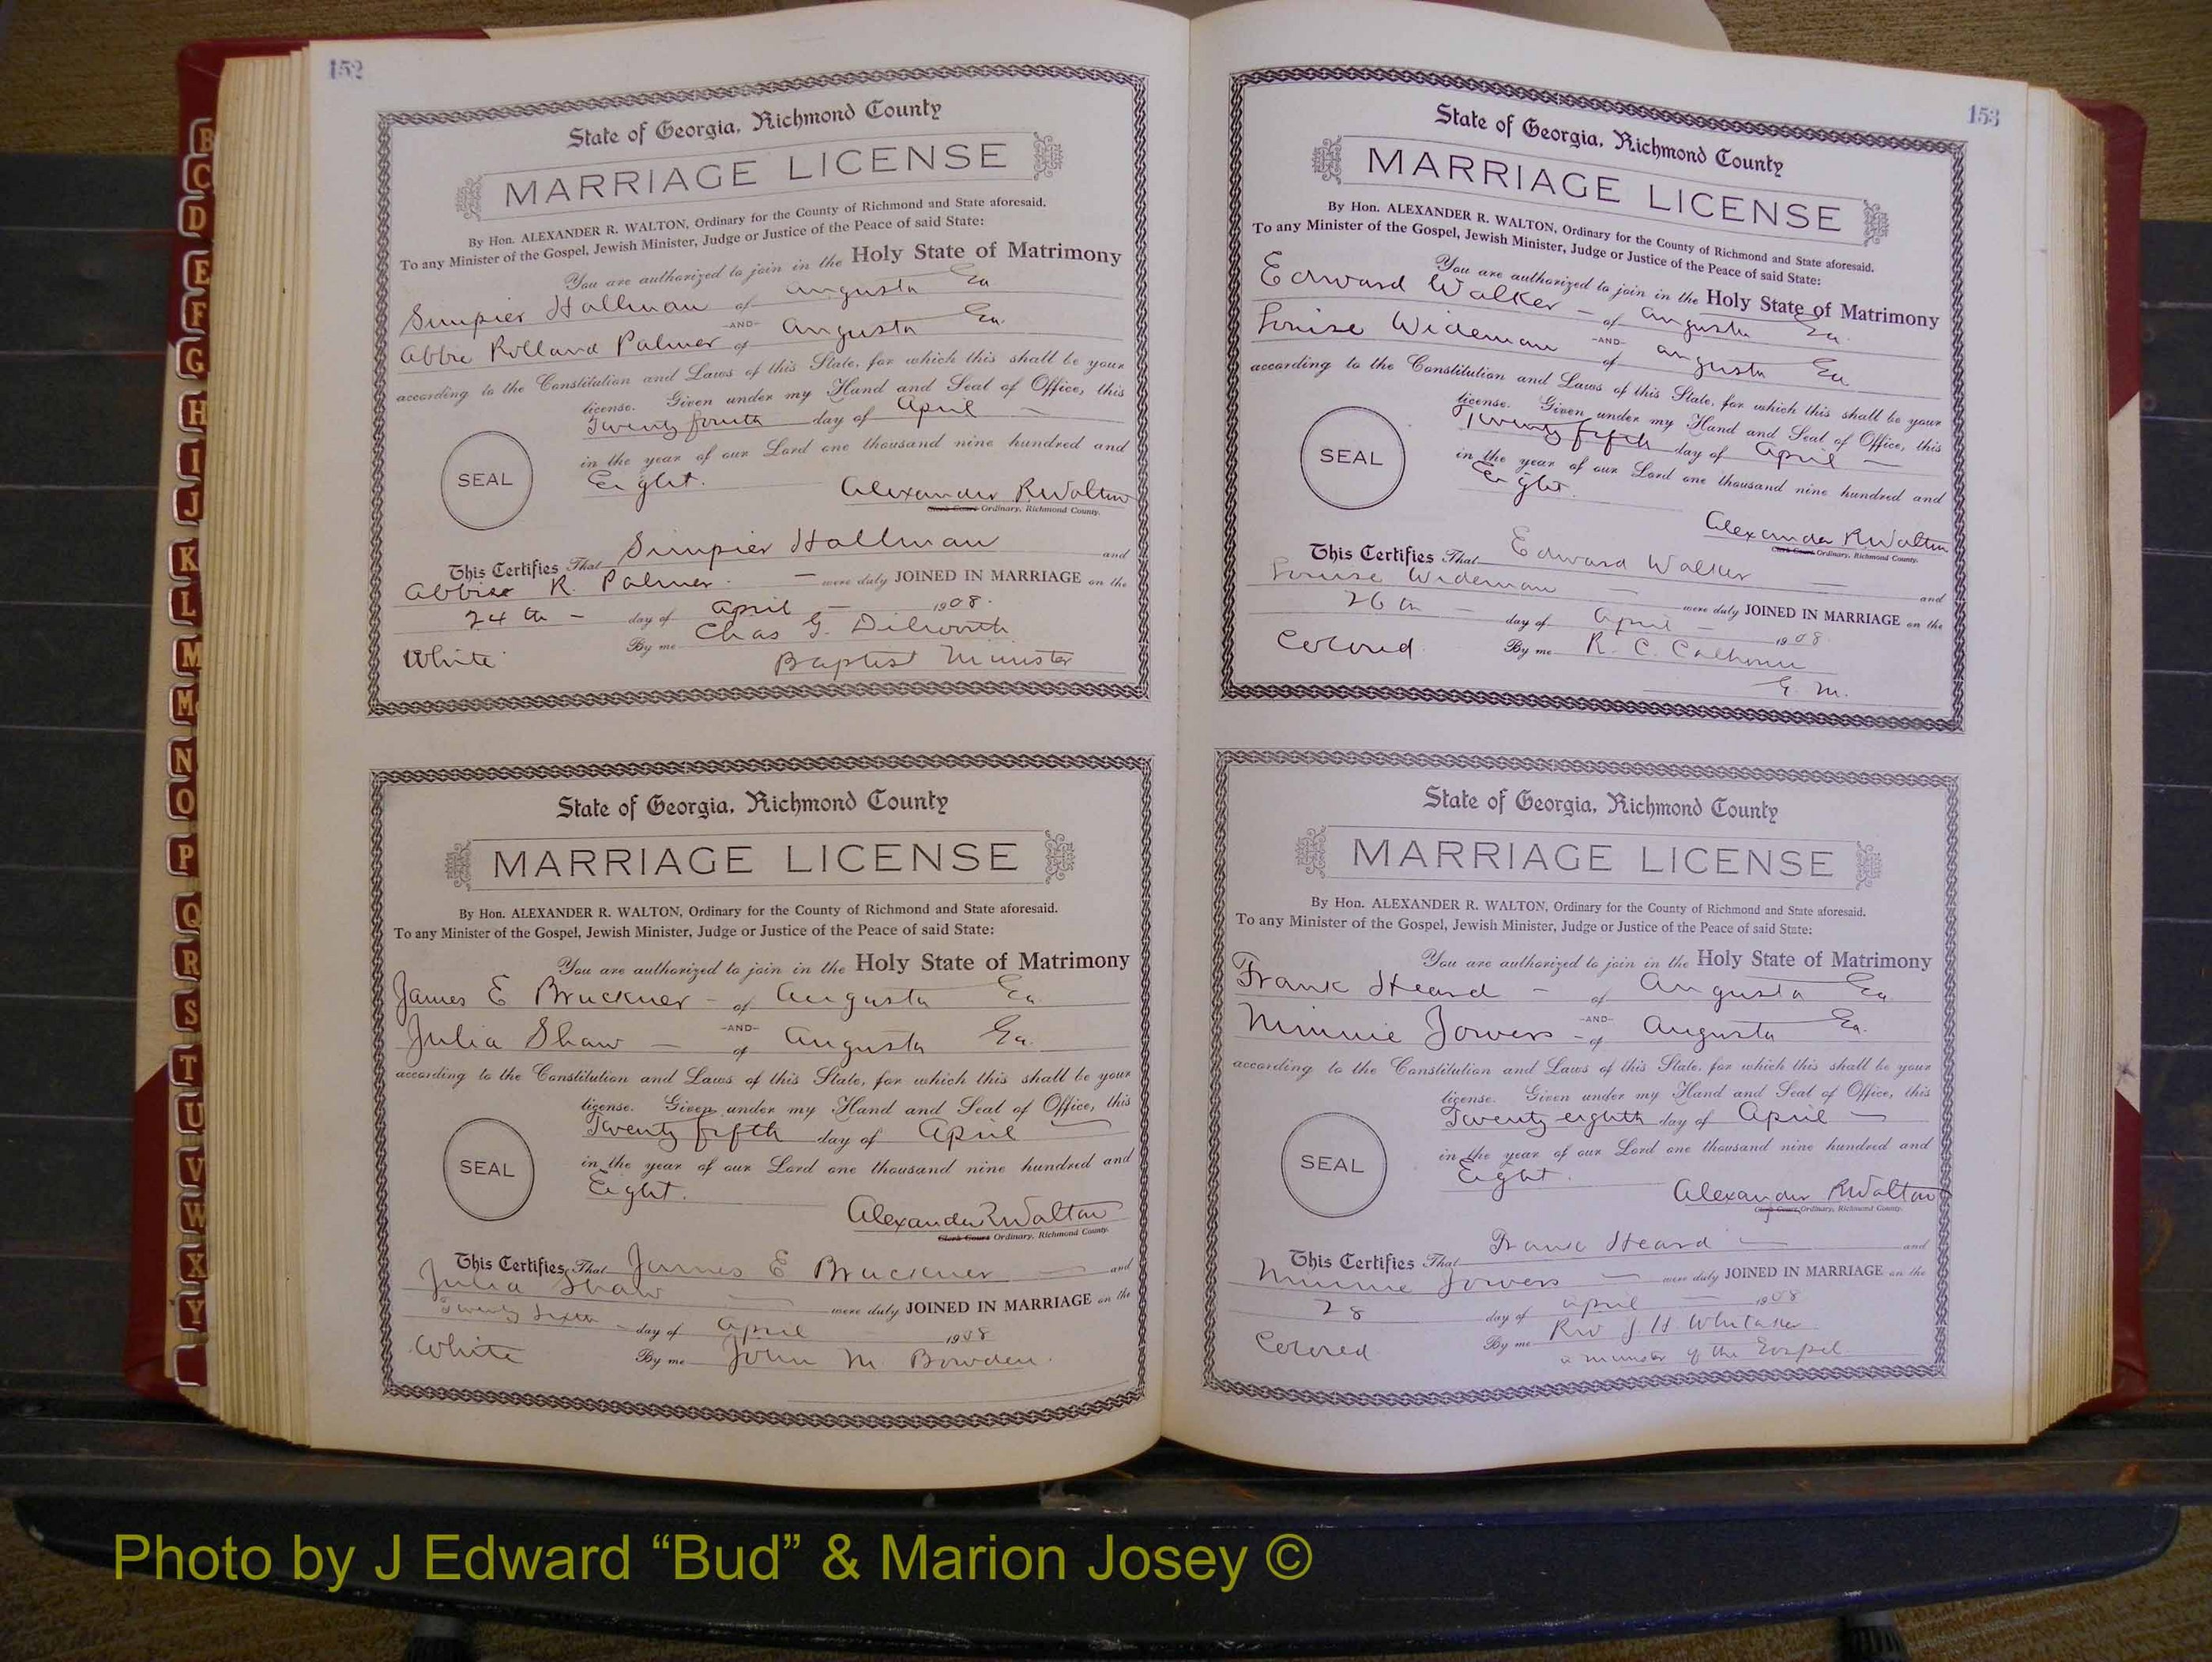 152
State of Georgia, Richmond County
MARRIAGE LICENSE
By Hon. ALEXANDER R. WALTON, Ordinary for the County of Richmond and State aforesaid.
To any Minister of the Gospel, Jewish Minister, Judge or Justice of the Peace of said State:
You are authorized to join in the Holy State of Matrimony
Simpier Hallman of Augusta Ga
-AND-
Abbie Rolland Palmer of Augusta Ga.
according to the Constitution and Laws of this State, for which this shall be your
license. Given under my Hand and Seal of Office, this
Twenty fourth day of April
in the year of our Lord one thousand nine hundred and
SEAL
Eight.
Alexander R Walton
Clerk Court Ordinary, Richmond County.
This Certifies That Simpier Hallman and
Abbie R. Palmer. were duly JOINED IN MARRIAGE on the
24th day of April 1908.
By me Chas G. Dilworth
White Baptist Minister
State of Georgia, Richmond County
MARRIAGE LICENSE
By Hon. ALEXANDER R. WALTON, Ordinary for the County of Richmond and State aforesaid.
To any Minister of the Gospel, Jewish Minister, Judge or Justice of the Peace of said State:
You are authorized to join in the Holy State of Matrimony
James E Bruckner - of Augusta Ga
-AND-
Julia Shaw - of Augusta Ga.
according to the Constitution and Laws of this State, for which this shall be your
license. Given under my Hand and Seal of Office, this
Twenty fifth day of April
in the year of our Lord one thousand nine hundred and
SEAL
Eight.
Alexander R Walton
Clerk Court Ordinary, Richmond County.
This Certifies That James E Bruckner and
Julia Shaw were duly JOINED IN MARRIAGE on the
Twenty Sixth - day of April 1908
White By me John M. Bowden.
153
State of Georgia, Richmond County
MARRIAGE LICENSE
By Hon. ALEXANDER R. WALTON, Ordinary for the County of Richmond and State aforesaid.
To any Minister of the Gospel, Jewish Minister, Judge or Justice of the Peace of said State:
You are authorized to join in the Holy State of Matrimony
Edward Walker - of Augusta Ga.
-AND-
Louise Wideman of Augusta Ga
according to the Constitution and Laws of this State, for which this shall be your
license. Given under my Hand and Seal of Office, this
Twenty fifth day of April
in the year of our Lord one thousand nine hundred and
SEAL
Eight.
Alexander R Walton
Clerk Court Ordinary, Richmond County.
This Certifies That Edward Walker and
Louise Wideman were duly JOINED IN MARRIAGE on the
26th day of April 1908
Colored By me R. C. Calhoun
G. M.
State of Georgia, Richmond County
MARRIAGE LICENSE
By Hon. ALEXANDER R. WALTON, Ordinary for the County of Richmond and State aforesaid.
To any Minister of the Gospel, Jewish Minister, Judge or Justice of the Peace of said State:
You are authorized to join in the Holy State of Matrimony
Frank Heard - of Augusta Ga
-AND-
Minnie Jowers - of Augusta Ga.
according to the Constitution and Laws of this State, for which this shall be your
license. Given under my Hand and Seal of Office, this
Twenty eighth day of April
in the year of our Lord one thousand nine hundred and
SEAL
Eight.
Alexander R Walton
Clerk Court Ordinary, Richmond County.
This Certifies That Frank Heard and
Minnie Jowers were duly JOINED IN MARRIAGE on the
28 day of April 1908
Colored By me Rev J. H. Whitaker
a minister of the Gospel.
B
C
D
E
F
G
H
I
J
K
L
M
Mc
N
O
P
Q
R
S
T
U
V
W
X
Y
Photo by J Edward “Bud” & Marion Josey ©